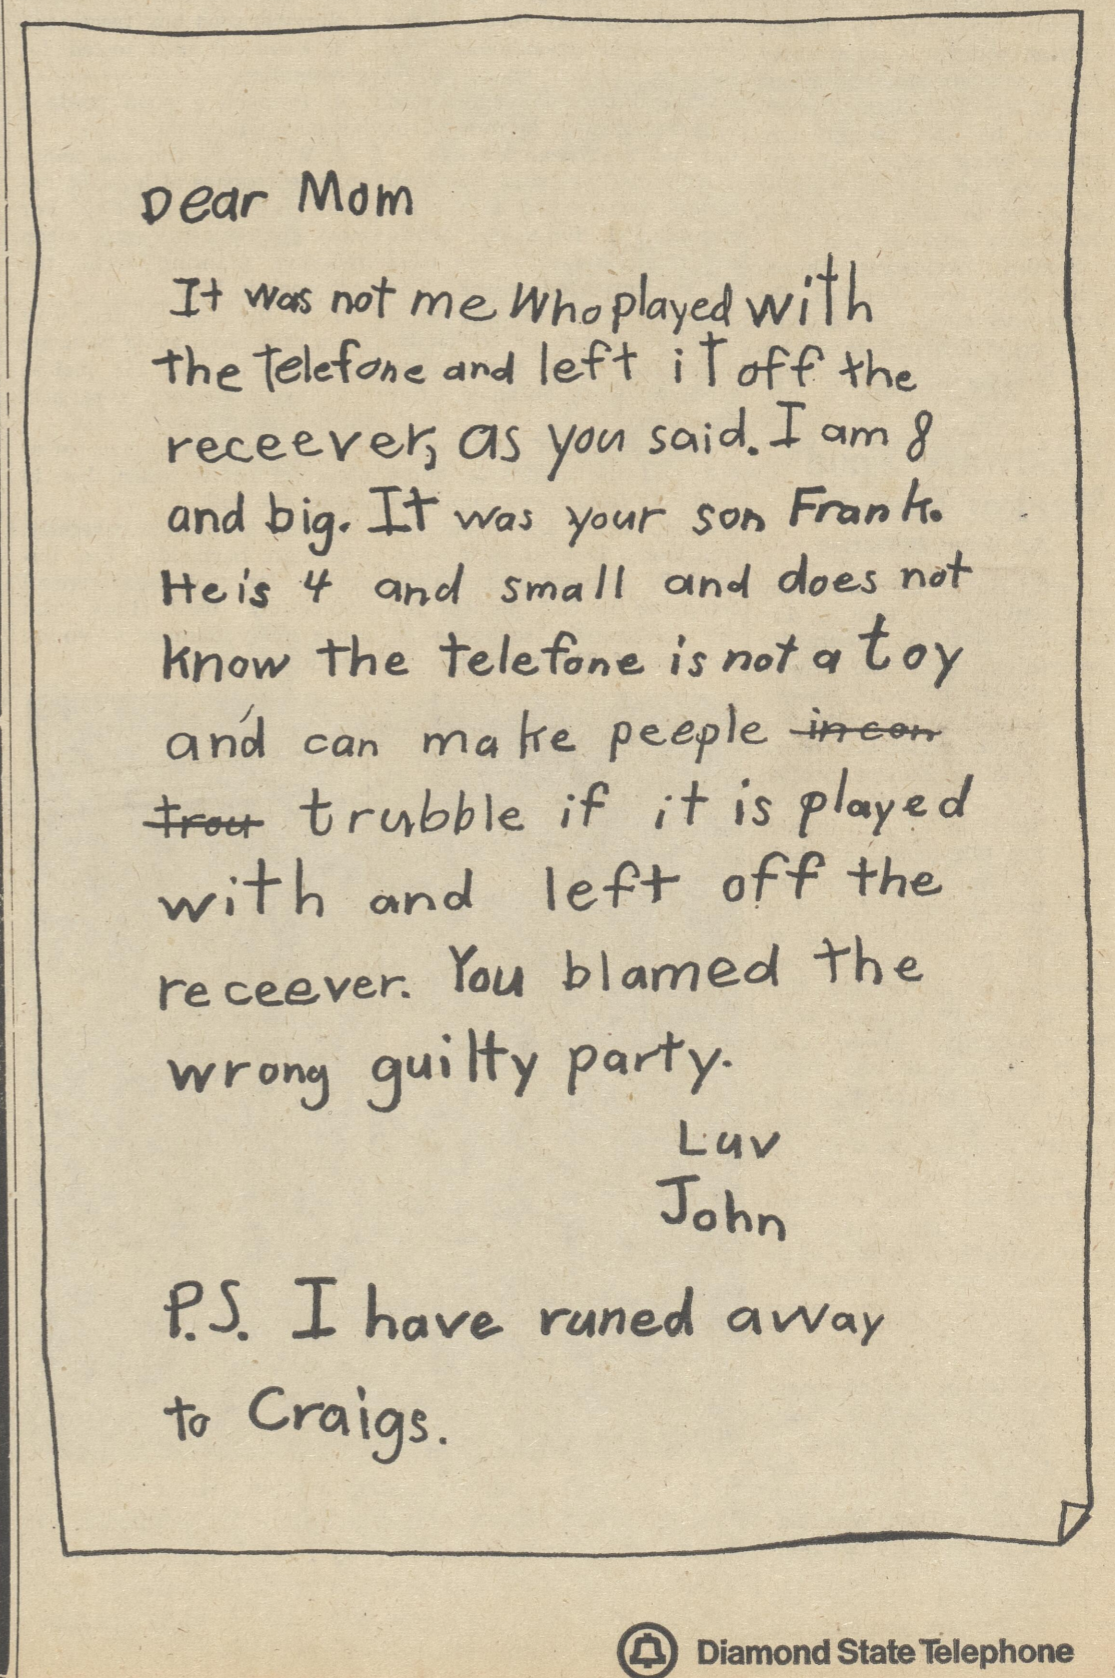 Dear Mom
It was not me Who played with
the telefone and left it off the
receever, as you said. I am 8
and big. It was your son Frank.
He is 4 and small and does not
know the telefone is not a toy
and can make peeple incon
trou trubble if it is played
with and left off the
receever. You blamed the
wrong guilty party.
Luv
John
P.S. I have runed away
to Craigs.
Diamond State Telephone